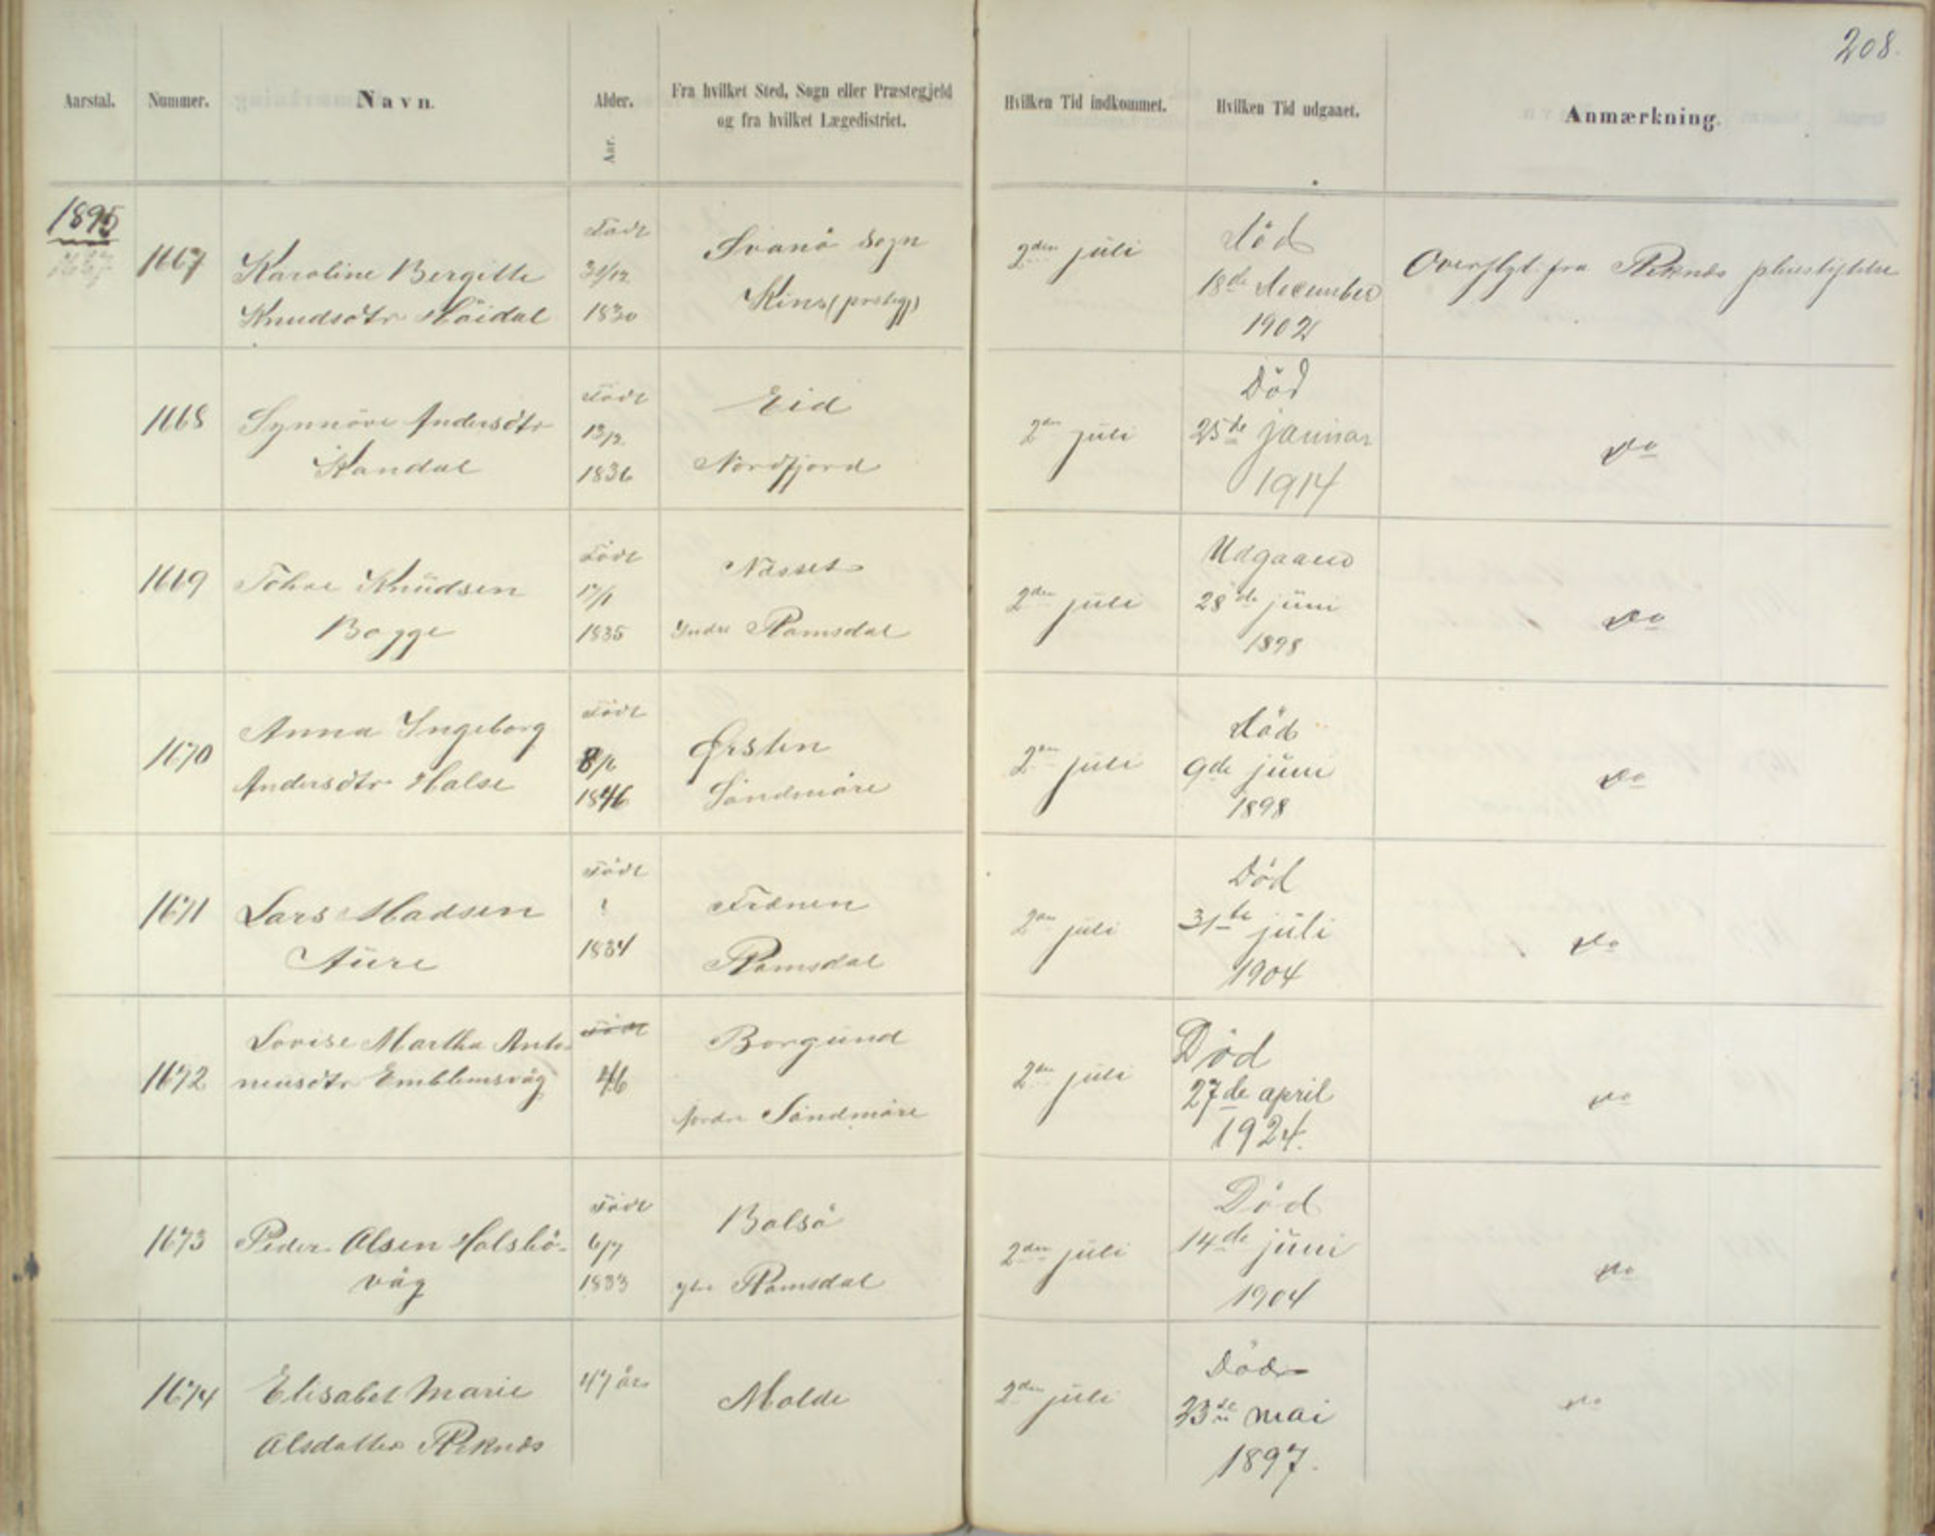 208.
Aarstal.
Nummer.
Navn.
Alder.
Aar.
Fra hvilket Sted, Sogn eller Præstegjeld
og fra hvilket Lægedistrict.
Hvilken Tid indkommet.
Hvilken Tid udgaaet.
Anmærkning.
1895
1667
Karoline Bergitte
Knudsdtr Höidal
Födt
31/12
1830
Svanö Sogn
Kins (prstegj)
2den juli
död
18de december
1902
Overflyt fra Reknæs pleiestiftelse
1668
Synnöve Andersdtr
Kandal
Födt
13/2
1836
Eid
Nordfjord
2den juli
Död
25de januar
1914
Do
1669
Tohre Knudsen
Bogge
Födt
17/1
1835
Næsset
Indre Romsdal
2den juli
Udgaaed
28de juni
1898
Do
1670
Anna Ingeborg
Andersdtr Halse
Födt
8/6
1846
Örsten
Söndmöre
2den juli
död
9de juni
1898
Do
1671
Lars Madsen
Aure
Födt
?
1834
Frænen
Romsdal
2den juli
Död
31te juli
1904
Do
1672
Lovise Martha Anto-
neusdtr Emblemsvåg
Födt
46
Borgund
Nordre Söndmöre
2den juli
Död
27de april
1924.
Do
1673
Peder Olsen Holsbö-
våg
Födt
6/7
1833
Bolsö
ytre Romsdal
2den juli
Död
14de juni
1904
Do
1674
Elisabet Marie
Olsdatter Reknæs
47 år
Molde
2den juli
Död
23de mai
1897.
Do